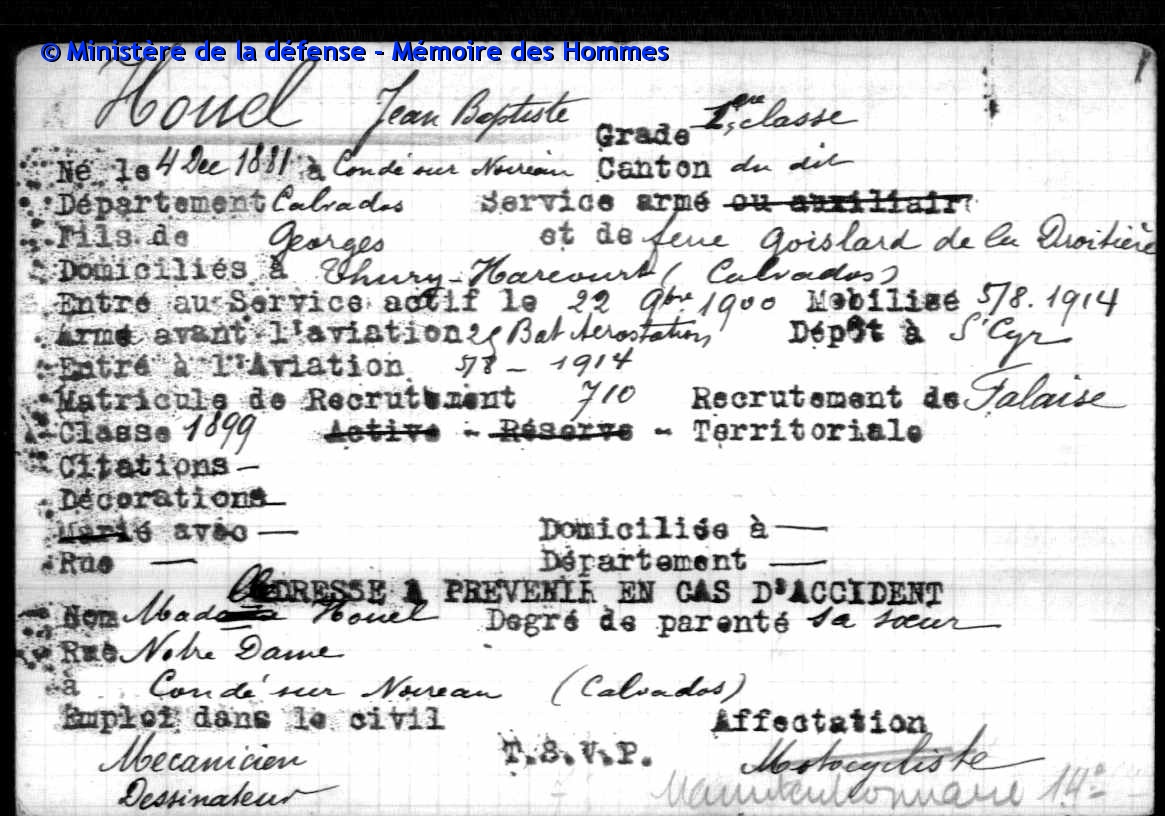 © Ministère de la défense - Mémoire des Hommes
Houel Jean Baptiste Grade 1ère classe
Né le 4 Dec 1881 à Condé sur Noireau Canton du dit
Département Calvados Service armé ou auxiliair
Fils de Georges et de feue Goislard de la Droitière
Domiciliés à Thury-Harcourt (Calvados)
Entré au Service actif le 22 9bre 1900 Mobilisé 5/8.1914
Arme avant l'aviation 25 Bat Aerostation Dépôt à St Cyr
Entré à l'Aviation 5/8 - 1914
Matricule de Recrutement 710 Recrutement de Falaise
Classe 1899 Active - Réserve - Territoriale
Citations -
Décorations -
Marié avec - Domiciliée à -
Rue - Département -
ADRESSE A PREVENIR EN CAS D'ACCIDENT
Nom Houel Degré de parenté sa sœur
Rue Notre Dame
à Condé sur Noireau (Calvados)
Emploi dans le civil Affectation
Mecanicien T.S.V.P. Motocycliste
Dessinateur Manutentionnaire 14e